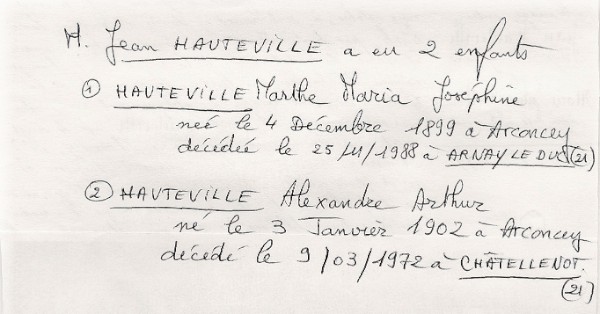 M. Jean HAUTEVILLE a eu 2 enfants
① HAUTEVILLE Marthe Maria Joséphine
neé le 4 Décembre 1899 à Arconcey
décédée le 25/11/1988 à ARNAY LE DUC (21)
② HAUTEVILLE Alexandre Arthur
né le 3 Janvièr 1902 à Arconcey
décédé le 9/03/1972 à CHÂTELLENOT.
(21)